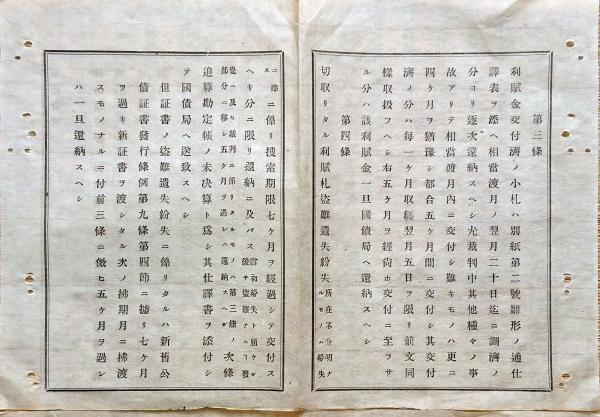 第三條
利賦金交付濟ノ小札ハ別紙第二號雛形ノ通仕
譯表ヲ添ヘ相當渡月ノ翌月二十日迄ニ調濟ノ
分ヨリ逐次還納スヘシ尤裁判中其他種々ノ事
故アリテ相當渡月内ニ交付シ難キモノハ更ニ
四ケ月ヲ猶豫シ都合五ケ月間ニ交付シ其交付
濟ノ分ハ毎一ケ月取纒翌月五日ヲ限リ前文同
樣取扱フヘシ右五ケ月ヲ經尚ホ交付ニ至ヲサ
ル分ハ該利賦金一旦國債局ヘ還納スヘシ
第四條
切取リタル利賦札盗難遺失紛失所在不分明ノルモノハ紛失
ニ歸スニ係リ搜索期限七ケ月ヲ經過シテ交付ス
ヘキ分ニ限リ還納ニ及ハス
部分ニ移シ五ケ月ヲ過レハ還納スヘシ次條
追算勘定帳ノ未決算ト爲シ其仕譯書ヲ添付シ
テ國債局ヘ送致スヘシ
但証書ノ盗難遺失紛失ニ係リタルハ新舊公
債証書發行條例第九條第四節ニ據リ七ケ月
ヲ過キ新証書ヲ渡シタル次ノ拂期月ニ拂渡
スモノナルニ付前三條ニ倣ヒ五ケ月ヲ過シ
ハ一旦還納スヘシ